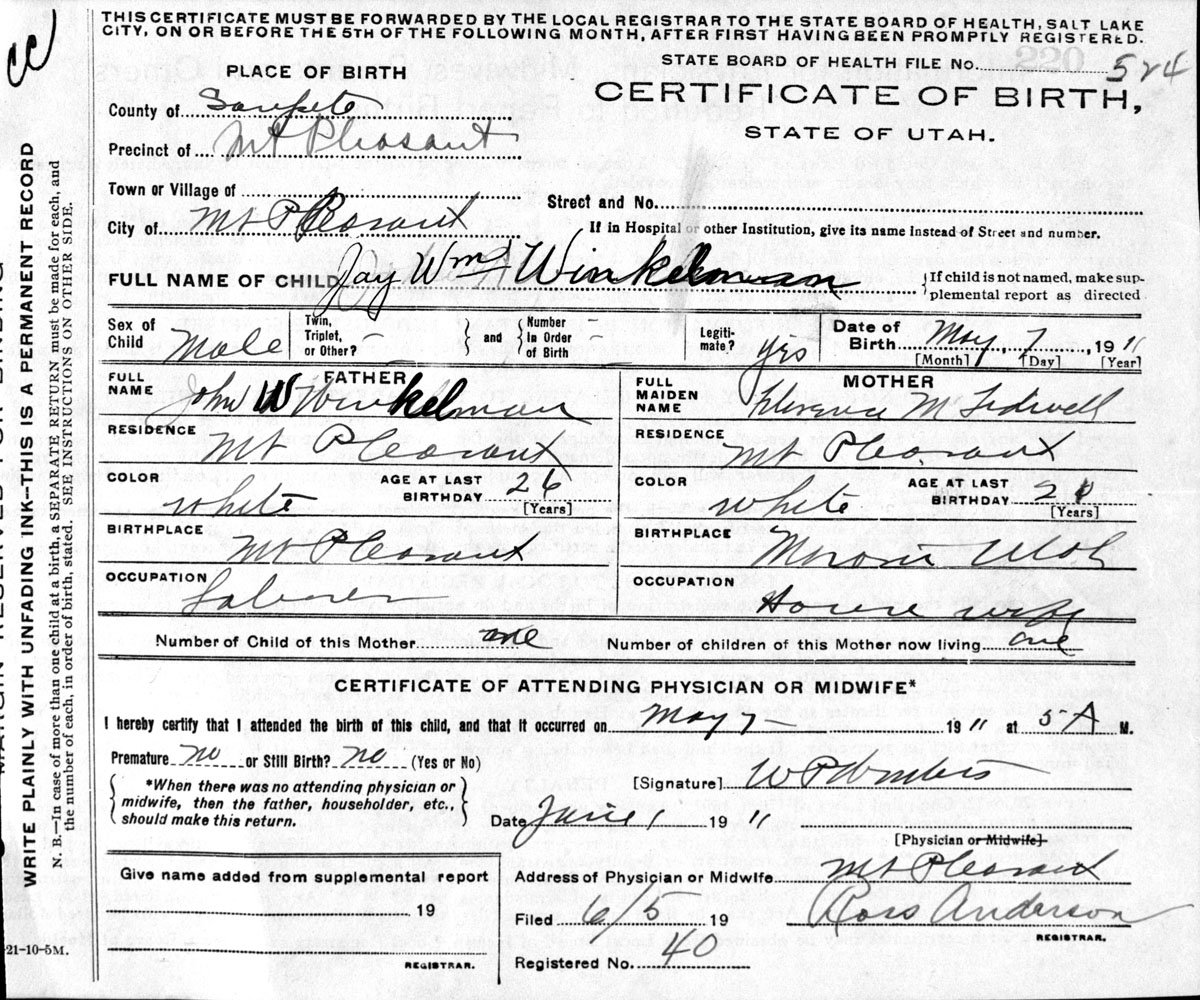 THIS CERTIFICATE MUST BE FORWARDED BY THE LOCAL REGISTRAR TO THE STATE BOARD OF HEALTH, SALT LAKE
CITY, ON OR BEFORE THE 5TH OF THE FOLLOWING MONTH, AFTER FIRST HAVING BEEN PROMPTLY REGISTERED.
PLACE OF BIRTH
STATE BOARD OF HEALTH FILE No. 524
CERTIFICATE OF BIRTH,
STATE OF UTAH.
County of Sanpete
Precinct of Mt Pleasant
Town or Village of
Street and No.
City of Mt Pleasant
If in Hospital or other Institution, give its name instead of Street and number.
FULL NAME OF CHILD Jay Wm Winkelman
{If child is not named, make sup-
plemental report as directed
Sex of Child Male
Twin, Triplet, or Other? } and { Number In Order of Birth –
Legiti-mate? yes
Date of Birth May 7, 1911
[Month] [Day] [Year]
FATHER
FULL NAME John W Winkelman
RESIDENCE Mt Pleasant
COLOR white
AGE AT LAST BIRTHDAY 26 [Years]
BIRTHPLACE Mt Pleasant
OCCUPATION Laborer
MOTHER
FULL MAIDEN NAME Florence M
RESIDENCE Mt Pleasant
COLOR white
AGE AT LAST BIRTHDAY [Years]
BIRTHPLACE Moroni Utah
OCCUPATION House wife
Number of Child of this Mother one
Number of children of this Mother now living one
CERTIFICATE OF ATTENDING PHYSICIAN OR MIDWIFE*
I hereby certify that I attended the birth of this child, and that it occurred on May 7 – 1911 at 5-A M.
Premature no or Still Birth? no (Yes or No)
{ *When there was no attending physician or
midwife, then the father, householder, etc.,
should make this return. }
[Signature] W P Winters
Date June 1 1911
[Physician or Midwife]
Give name added from supplemental report
19
REGISTRAR.
Address of Physician or Midwife Mt Pleasant
Filed 6/5 19
Ross Anderson
REGISTRAR.
Registered No. 40
21-10-5M.
WRITE PLAINLY WITH UNFADING INK--THIS IS A PERMANENT RECORD
N. B.—In case of more than one child at a birth, a SEPARATE RETURN must be made for each, and
the number of each, in order of birth, stated. SEE INSTRUCTIONS ON OTHER SIDE.